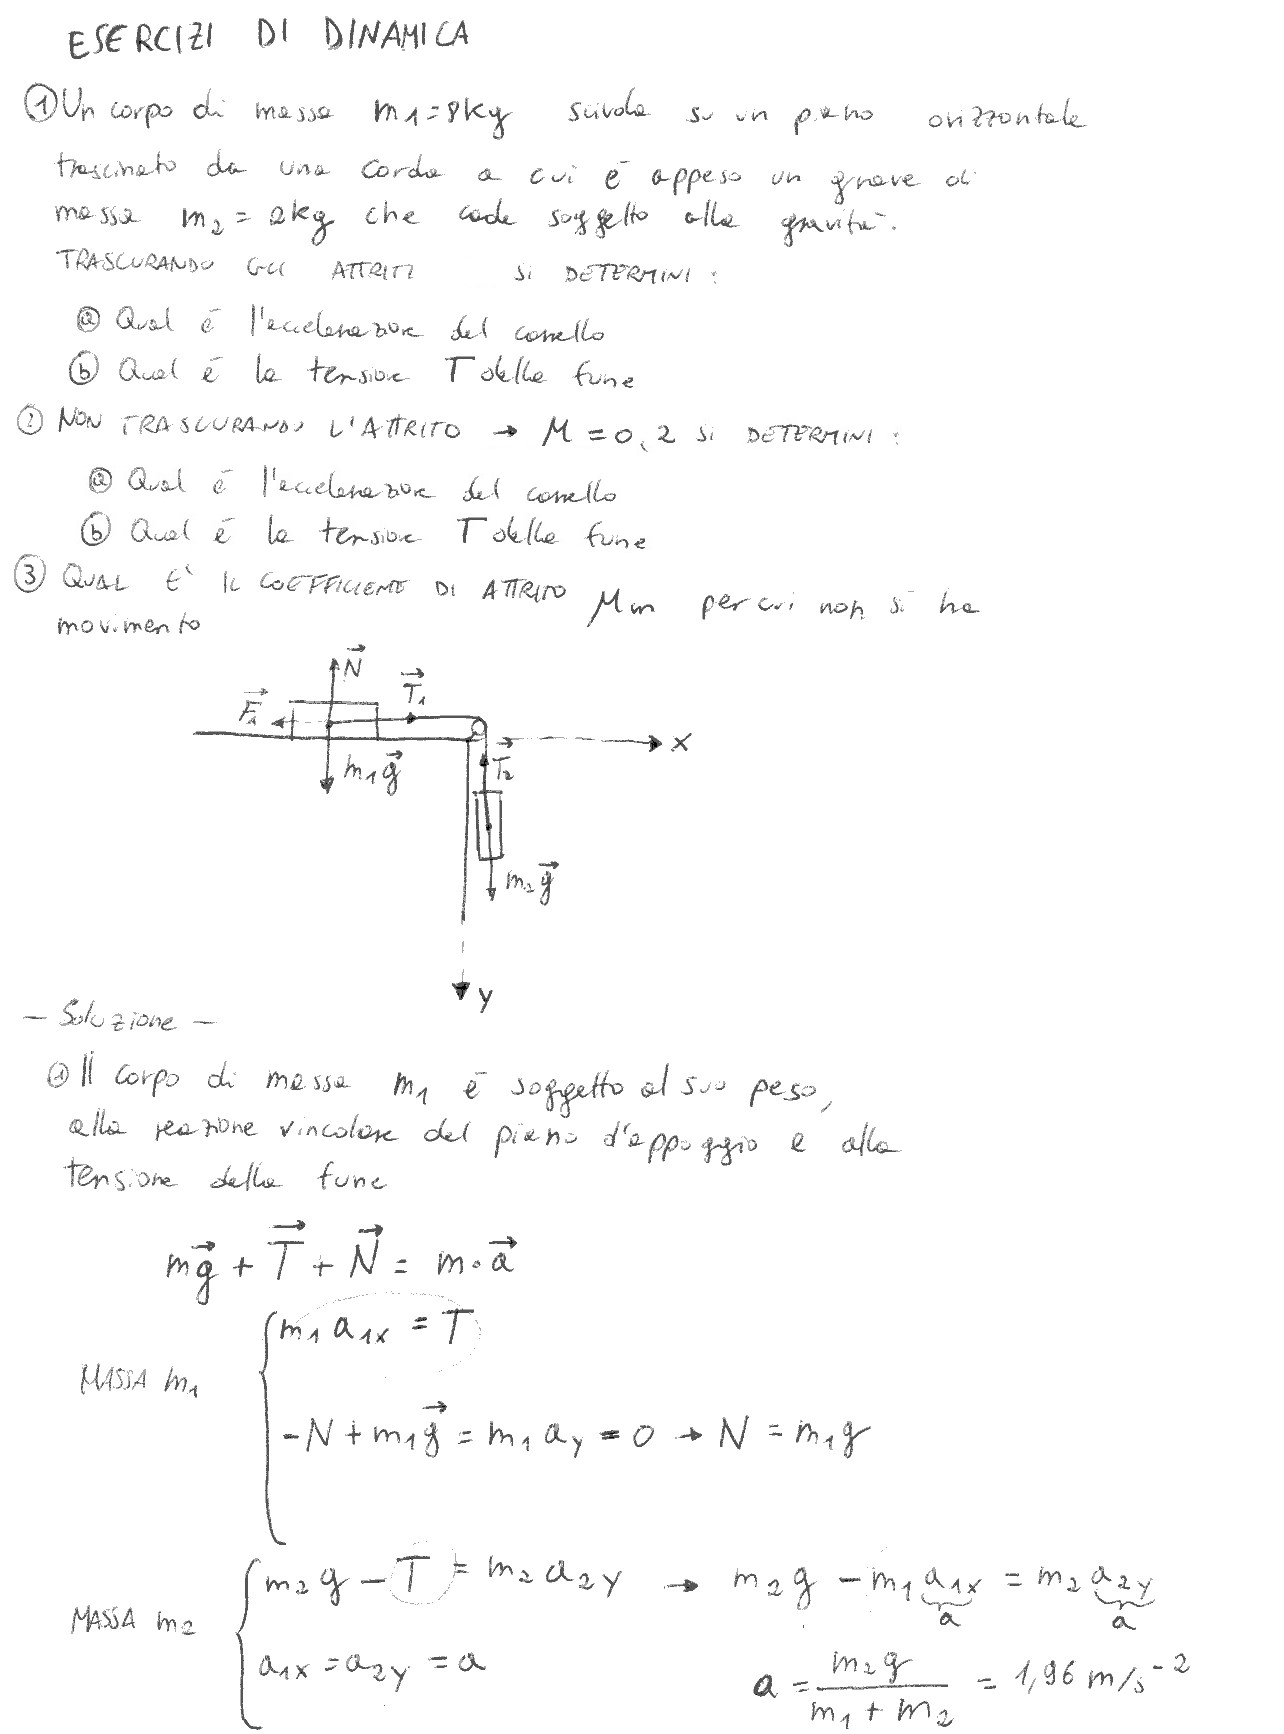 ESERCIZI DI DINAMICA
① Un corpo di massa m₁=8kg scivola su un piano orizzontale
trascinato da una corda a cui è appeso un grave di
massa m₂ = 2kg che cade soggetto alla gravità.
TRASCURANDO GLI ATTRITI SI DETERMINI:
ⓐ Qual è l'accelerazione del carrello
ⓑ Qual è la tensione T della fune
② NON TRASCURANDO L'ATTRITO → μ = 0,2 SI DETERMINI:
ⓐ Qual è l'accelerazione del carrello
ⓑ Qual è la tensione T della fune
③ QUAL E' IL COEFFICIENTE DI ATTRITO μm per cui non si ha
movimento
N⃗
F⃗₁
T⃗₁
m₁g⃗
T⃗₂
x
m₂g⃗
y
- Soluzione -
① Il corpo di massa m₁ è soggetto al suo peso,
alla reazione vincolare del piano d'appoggio e alla
tensione della fune
mg⃗ + T⃗ + N⃗ = m·a⃗
MASSA m₁
m₁a₁ₓ = T
-N + m₁g⃗ = m₁ a_y = 0 → N = m₁g
MASSA m₂
m₂g - T = m₂a₂y → m₂g - m₁a₁ₓ = m₂a₂y
a a
a₁ₓ = a₂y = a
a = m₂g / (m₁ + m₂) = 1,96 m/s⁻²